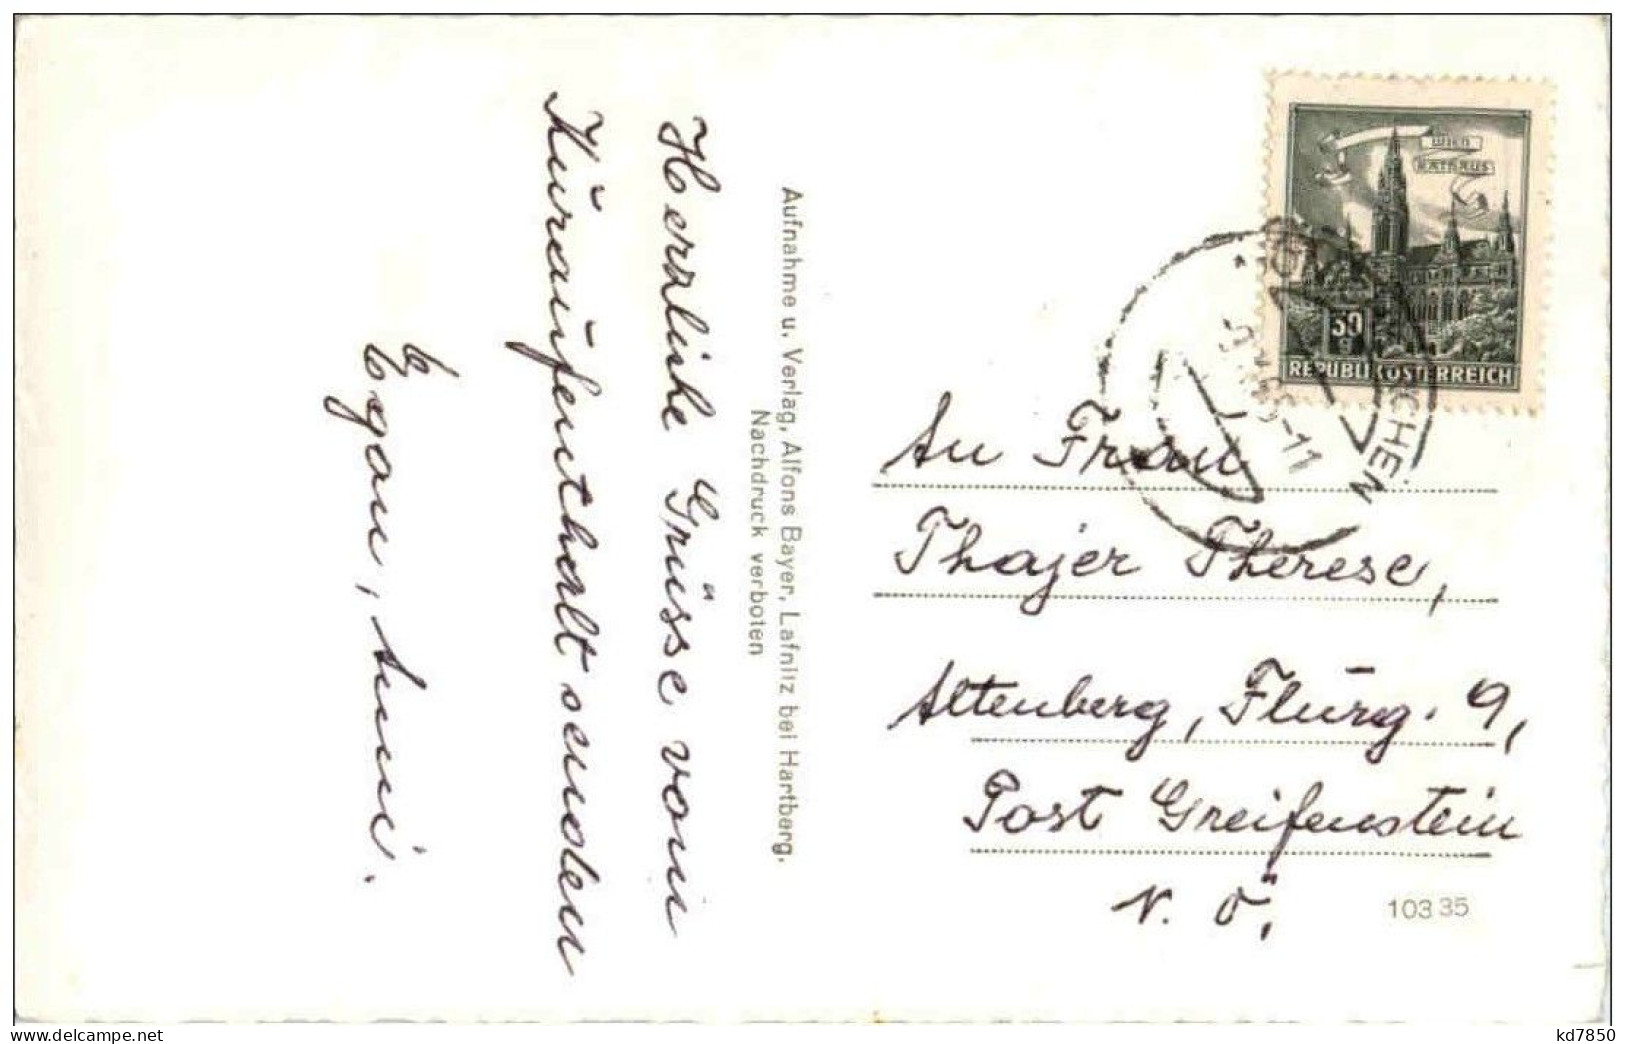 Herzliche Grüsse vom
Kuraufenthalt senden
Egon, Anni.
Aufnahme u. Verlag, Alfons Bayer, Lafnitz bei Hartberg.
Nachdruck verboten
WIEN
RATHAUS
30
REPUBLIK ÖSTERREICH
An Frau
Thajer Therese,
Altenberg, Flurg. 9,
Post Greifenstein
N. Ö.
103 35
www.delcampe.net
kd7850